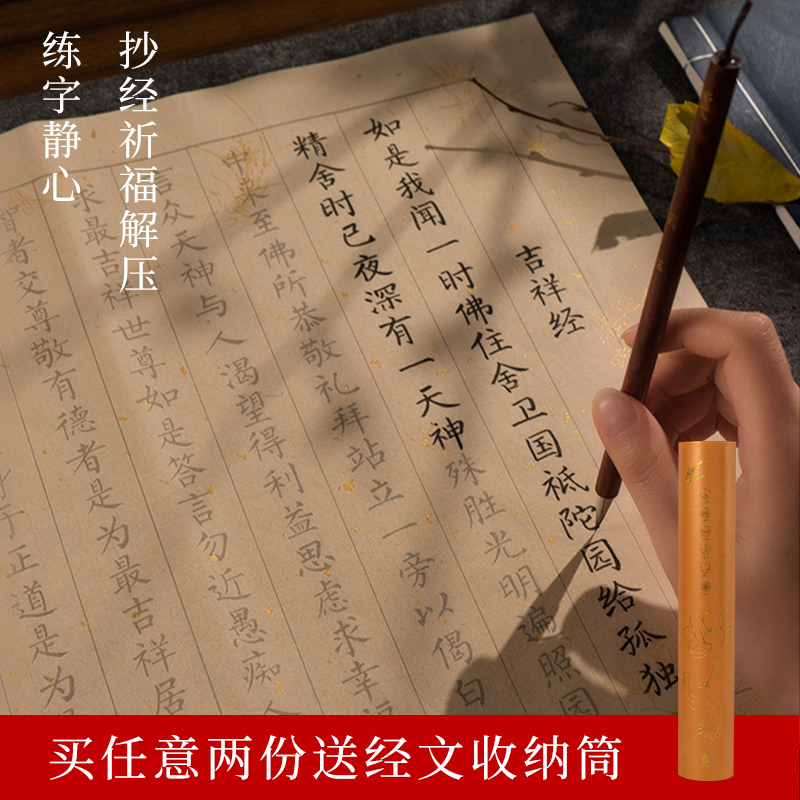 抄经祈福解压
练字静心
吉祥经
如是我闻一时佛住舍卫国祇陀园给孤独
精舍时已夜深有一天神殊胜光明遍照园
中来至佛所恭敬礼拜站立一旁以偈白
言众天神与人渴望得利益思虑求幸福
求最吉祥世尊如是答言勿近愚痴人
智者交尊敬有德者是为最吉祥居
于正道是为
买任意两份送经文收纳筒